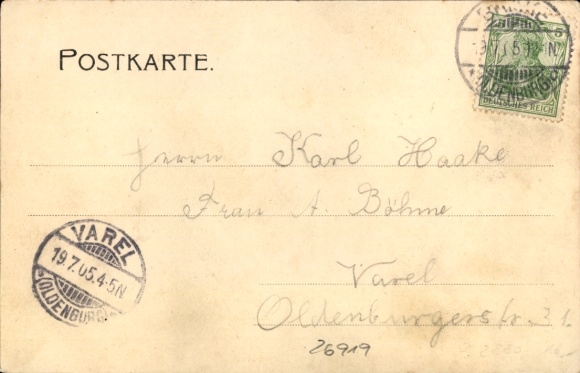 POSTKARTE.
19.7.05.1-2N
*(OLDENBURG)*
5
DEUTSCHES REICH
Herrn Karl Haake
Frau A. Böhme
VAREL
19.7.05.4-5N
*(OLDENBURG)*
Varel
Oldenburgerstr. 31.
26919